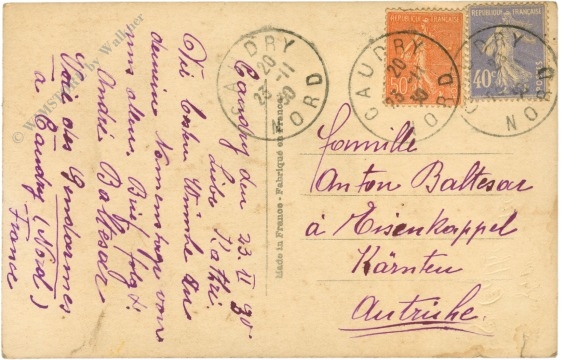 Caudry den 23.11 30.
Liebe Kathi.
Die besten Wünsche zu
deinem Namenstage von
uns allen. Brief folgt.
André Baltesar
Voie des Gendarmes.
à Caudry (Nord)
France
© by Walkner
Made in France - Fabriqué en France
CAUDRY
20
23-11
30
NORD
REPUBLIQUE FRANÇAISE
50c
POSTES
CAUDRY
20
23-11
30
NORD
REPUBLIQUE FRANÇAISE
40c
POSTES
NORD
familie
Anton Baltesar
à Eisenkappel
Kärnten
Autriche.